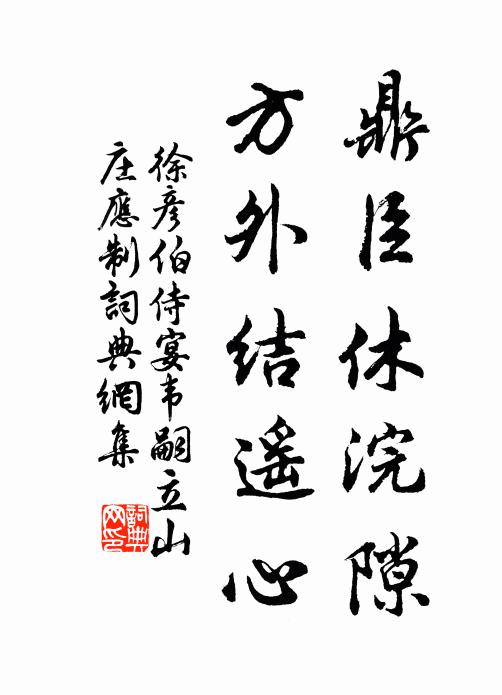 鼎臣休浣隙
方外結遥心
徐彦伯侍宴韦嗣立山
庄應制詞典網集
詞典网印